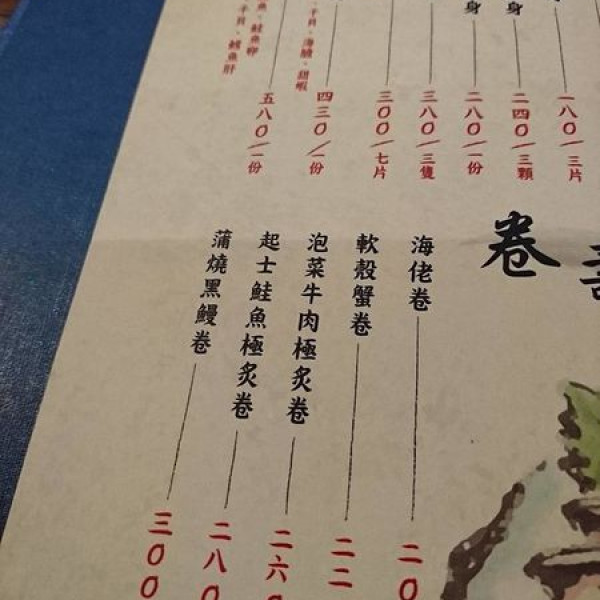 身
身
一八〇/三片
二四〇/三顆
二八〇/一份
三八〇/三隻
三〇〇/七片
干貝、海膽、甜蝦
四三〇/一份
魚、鮭魚卵
干貝、鱈魚肝
五八〇/一份
卷
海佬卷 二〇
軟殼蟹卷 二二
泡菜牛肉極炙卷 二六〇
起士鮭魚極炙卷 二八〇
蒲燒黑鰻卷 三〇〇